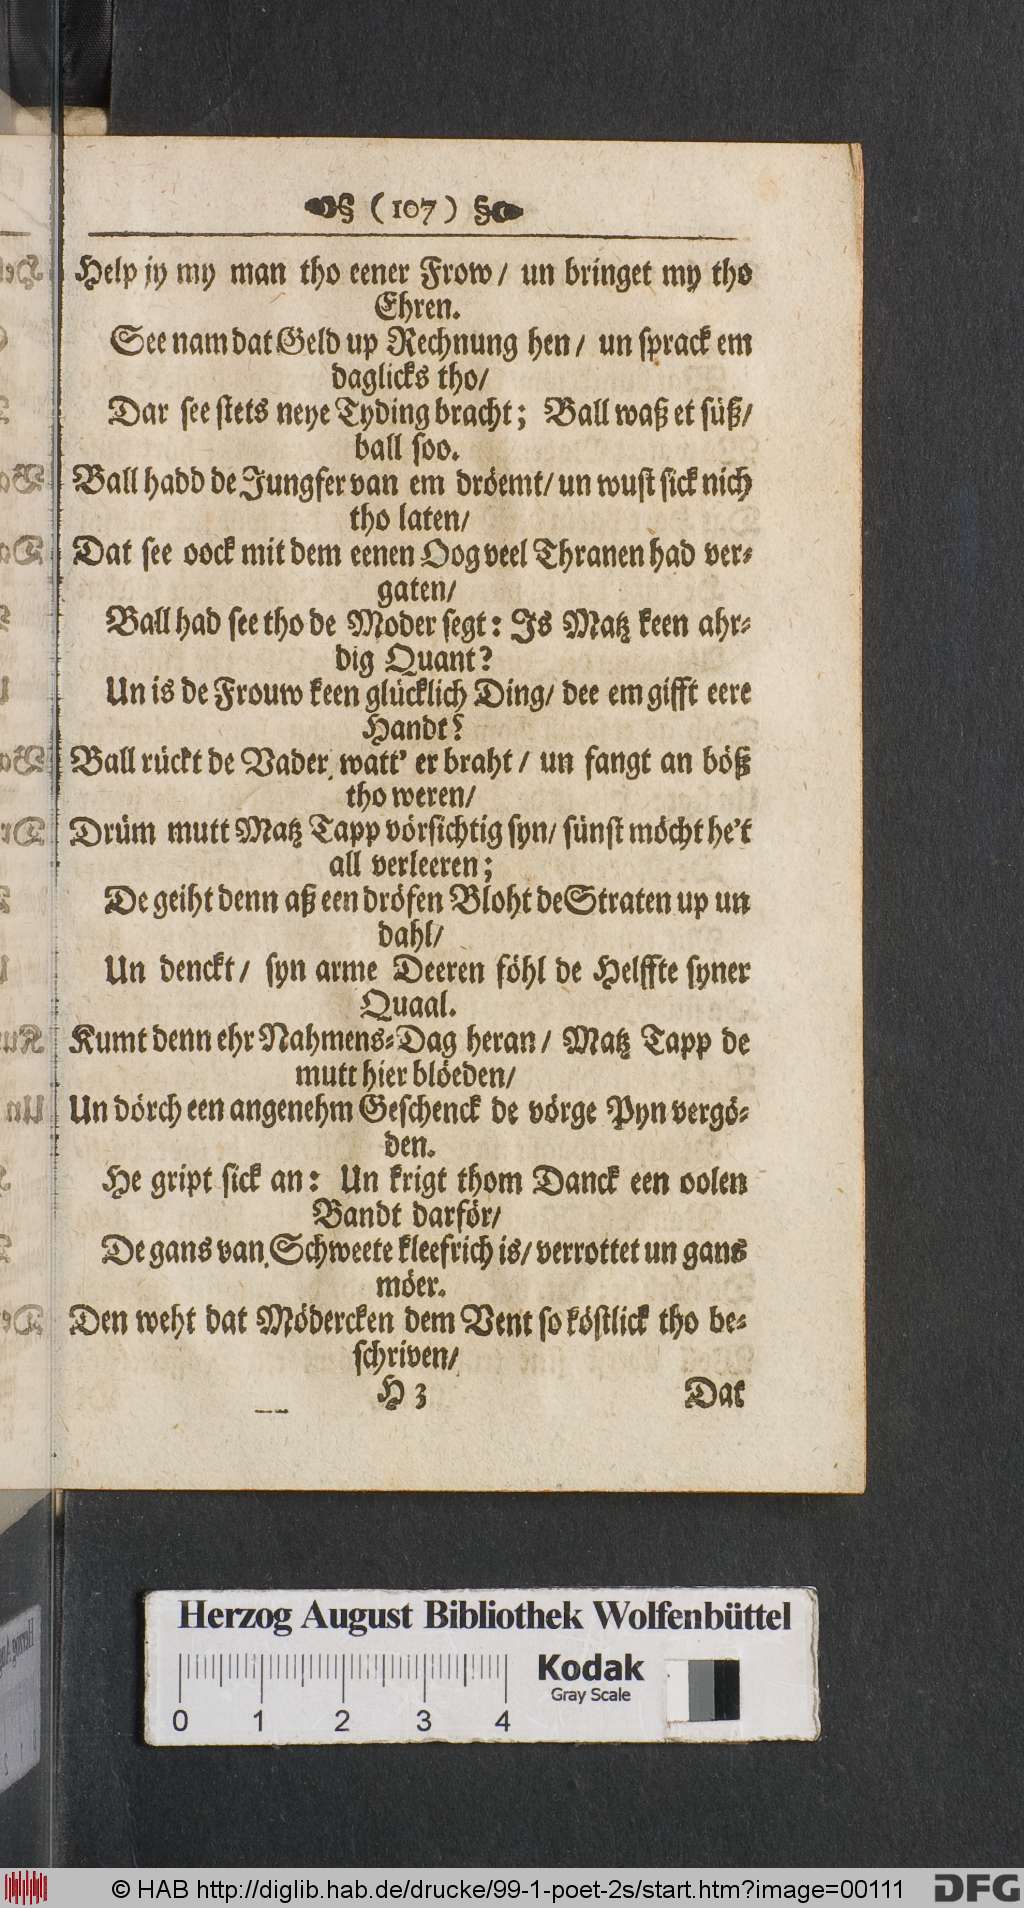 § ( 107 ) §
Help jy my man tho eener Frow / un bringet my tho
Ehren.
See nam dat Geld up Rechnung hen / un sprack em
daglicks tho /
Dar see stets neye Tyding bracht; Ball waß et süß /
ball soo.
Ball hadd de Jungfer van em dröemt / un wust sick nich
tho laten /
Dat see oock mit dem eenen Oog veel Thranen had ver-
gaten /
Ball had see tho de Moder segt: Is Matz keen ahr-
dig Quant?
Un is de Frouw keen glücklich Ding / dee em gifft eere
Handt?
Ball rückt de Vader watt' er braht / un fangt an böß
tho weren /
Drüm mutt Matz Tapp vörsichtig syn / sünst möcht he't
all verleeren;
De geiht denn aß een dröfen Bloht de Straten up un
dahl /
Un denckt / syn arme Deeren föhl de Helffte syner
Quaal.
Kumt denn ehr Nahmens-Dag heran / Matz Tapp de
mutt hier blöeden /
Un dörch een angenehm Geschenck de vörge Pyn vergö-
den.
He gript sick an: Un krigt thom Danck een oolen
Bandt darför /
De gans van Schweete kleefrich is / verrottet un gans
möer.
Den weht dat Mödercken dem Vent so köstlick tho be-
schriven /
H 3 Dat
Herzog August Bibliothek Wolfenbüttel
Kodak
Gray Scale
0 1 2 3 4
© HAB http://diglib.hab.de/drucke/99-1-poet-2s/start.htm?image=00111
DFG